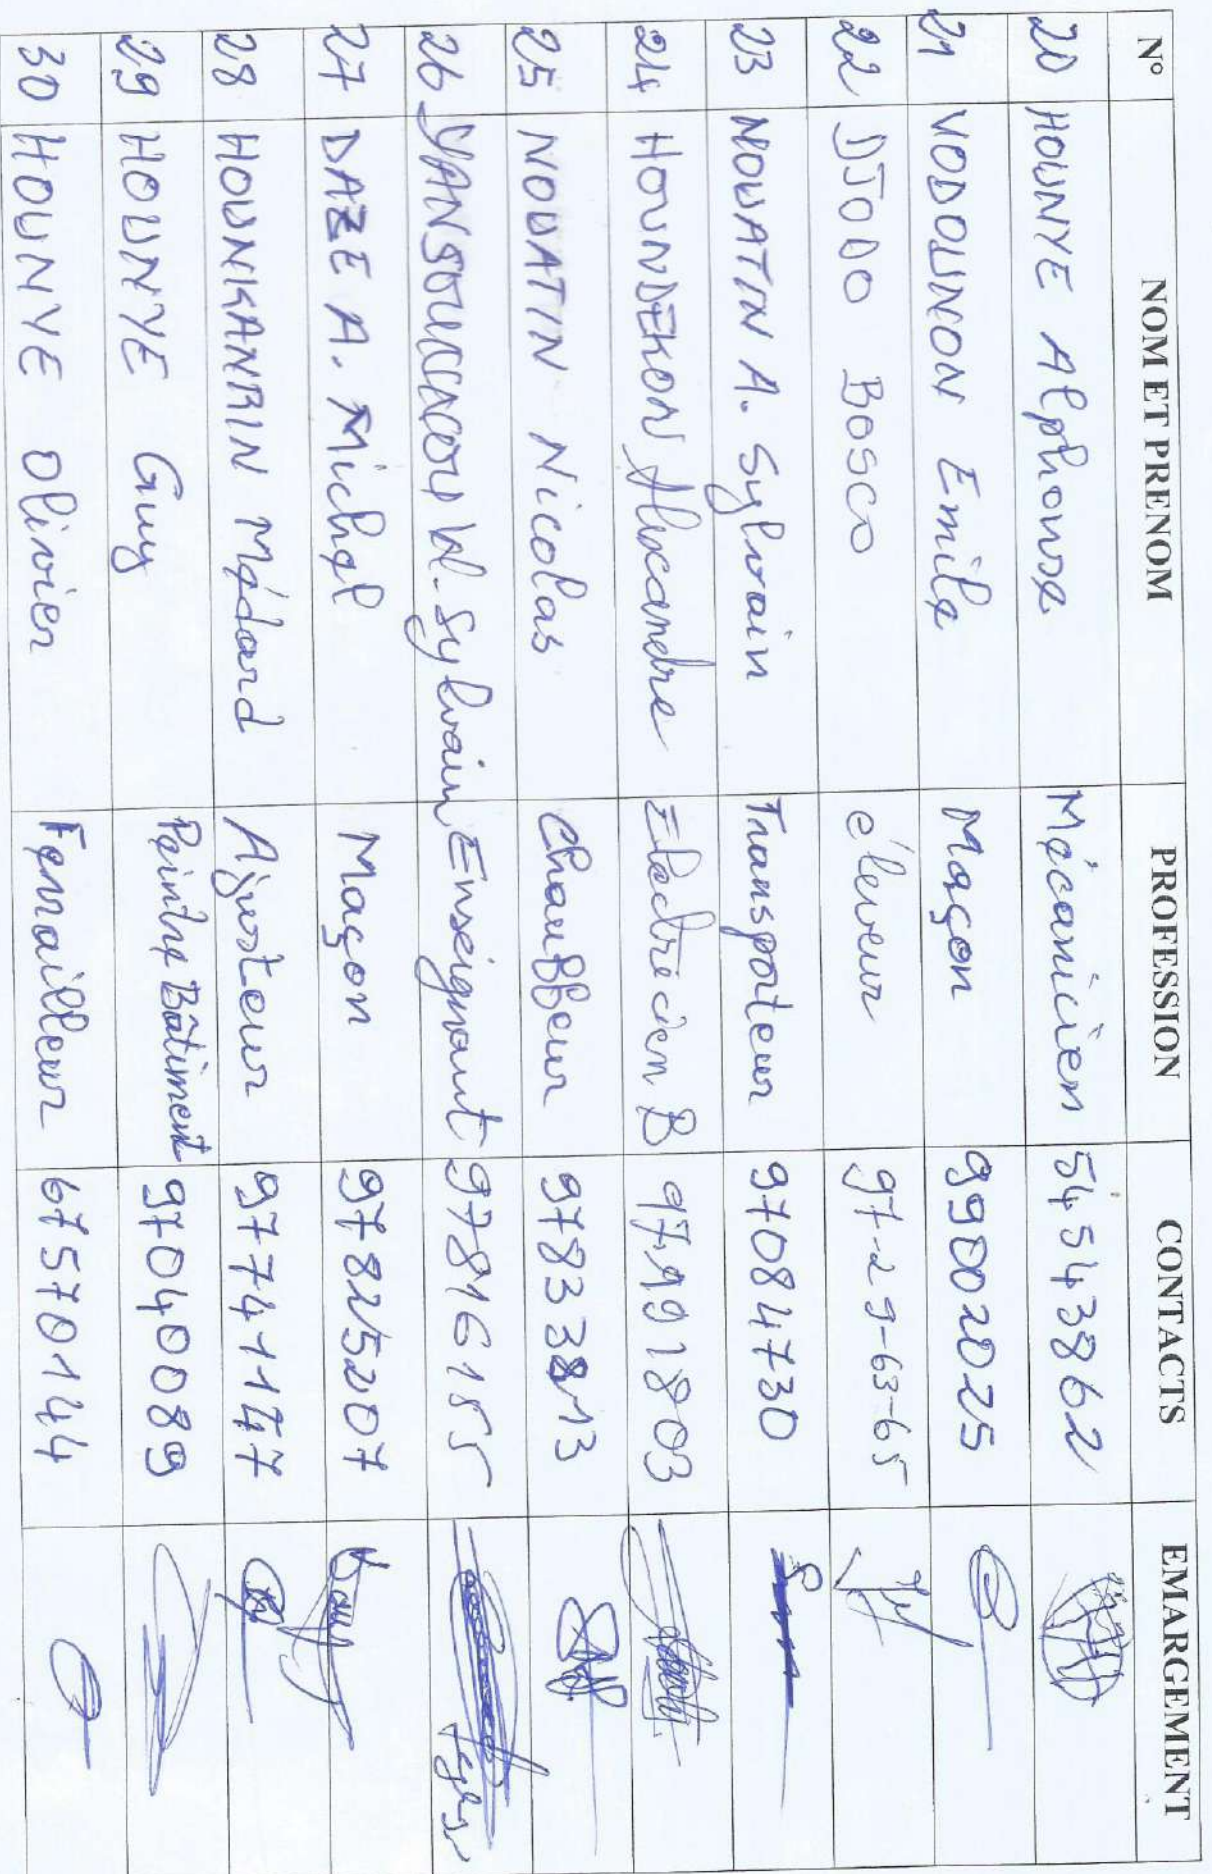 N° NOM ET PRENOM PROFESSION CONTACTS EMARGEMENT
20 HOUNYE Alphonse Mécanicien 54543862
21 VODOUNON Emile Maçon 99002025
22 DJODO Bosco éleveur 97-29-63-65
23 NOUATIN A. Sylvain Transporteur 97084730
24 HOUNDEKON Alexandre Electricien B 97991803
25 NOUATIN Nicolas Chauffeur 97833813
26 W. Sylvain Enseignant 97816155
27 DAZE A. Michel Maçon 97825207
28 HOUNKANRIN Médard Ajusteur 97741147
29 HOUNYE Guy Peintre Bâtiment 97040089
30 HOUNYE Olivier Ferrailleur 67570144